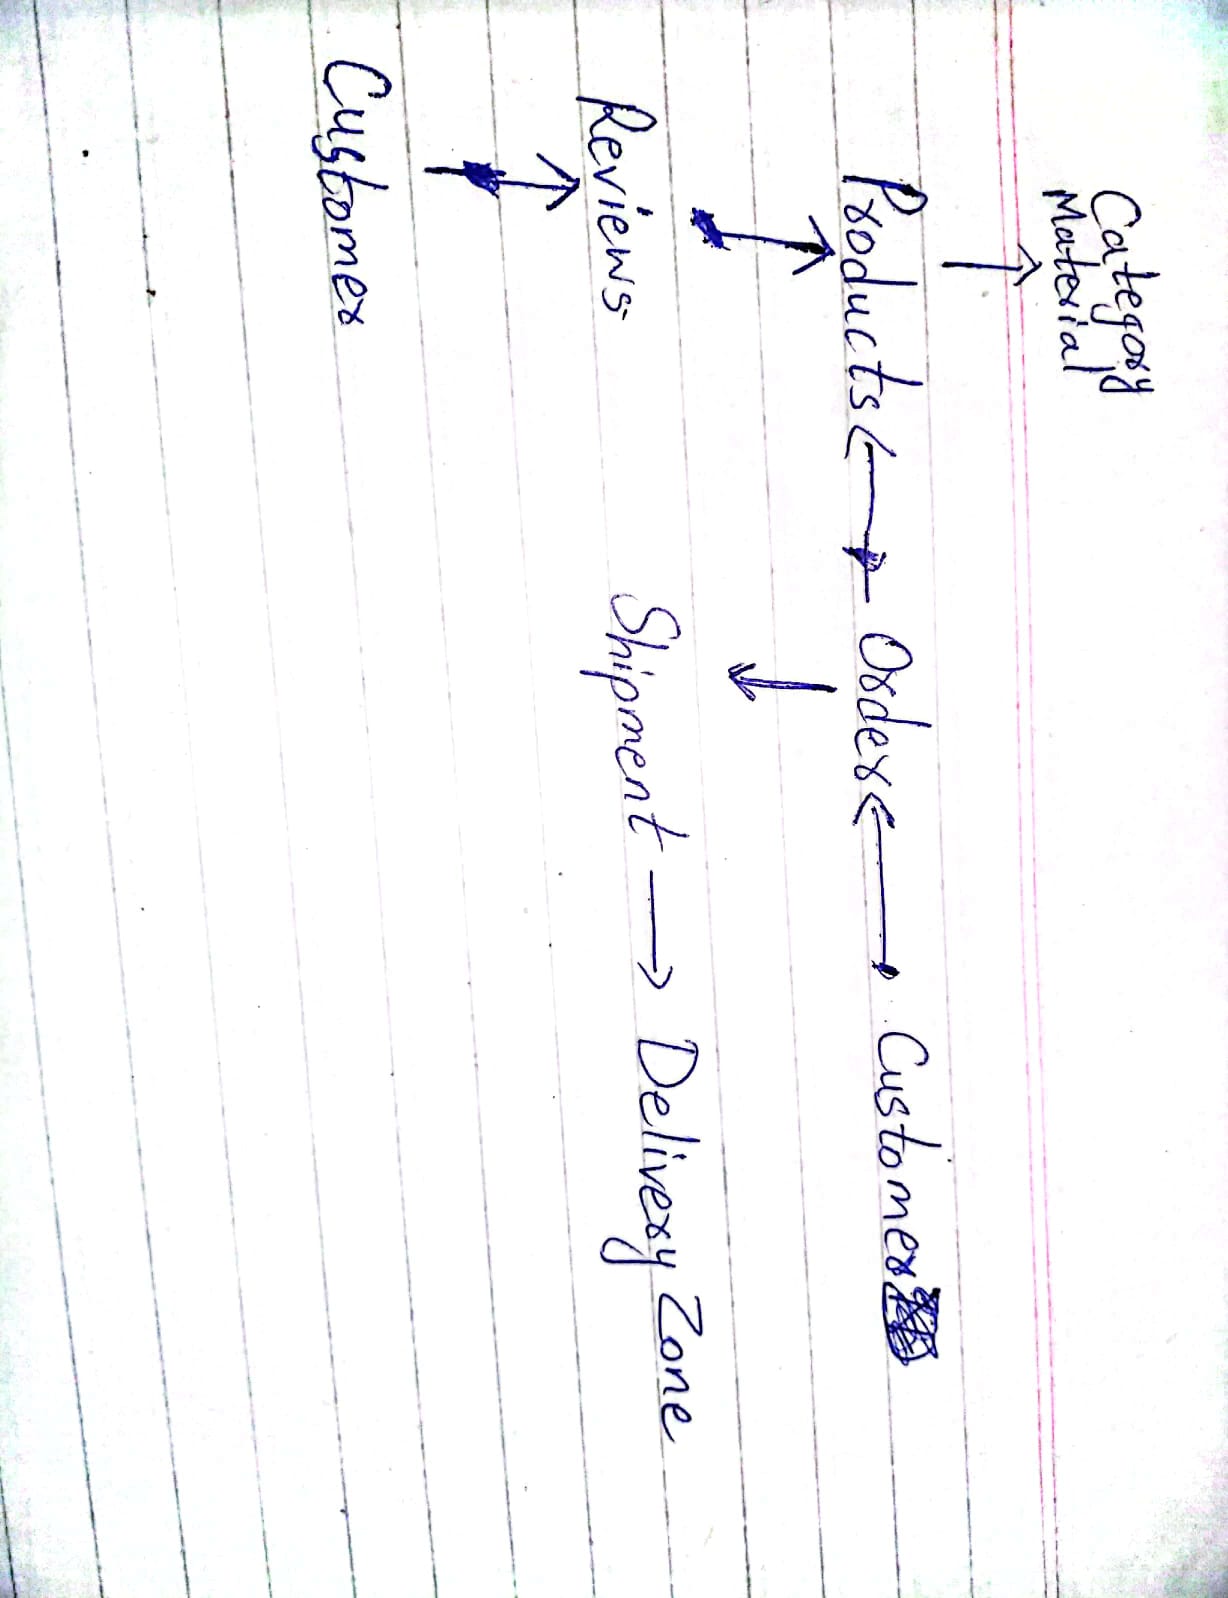 Category
Material
Products Order Customer
Reviews Shipment Delivery Zone
Customer